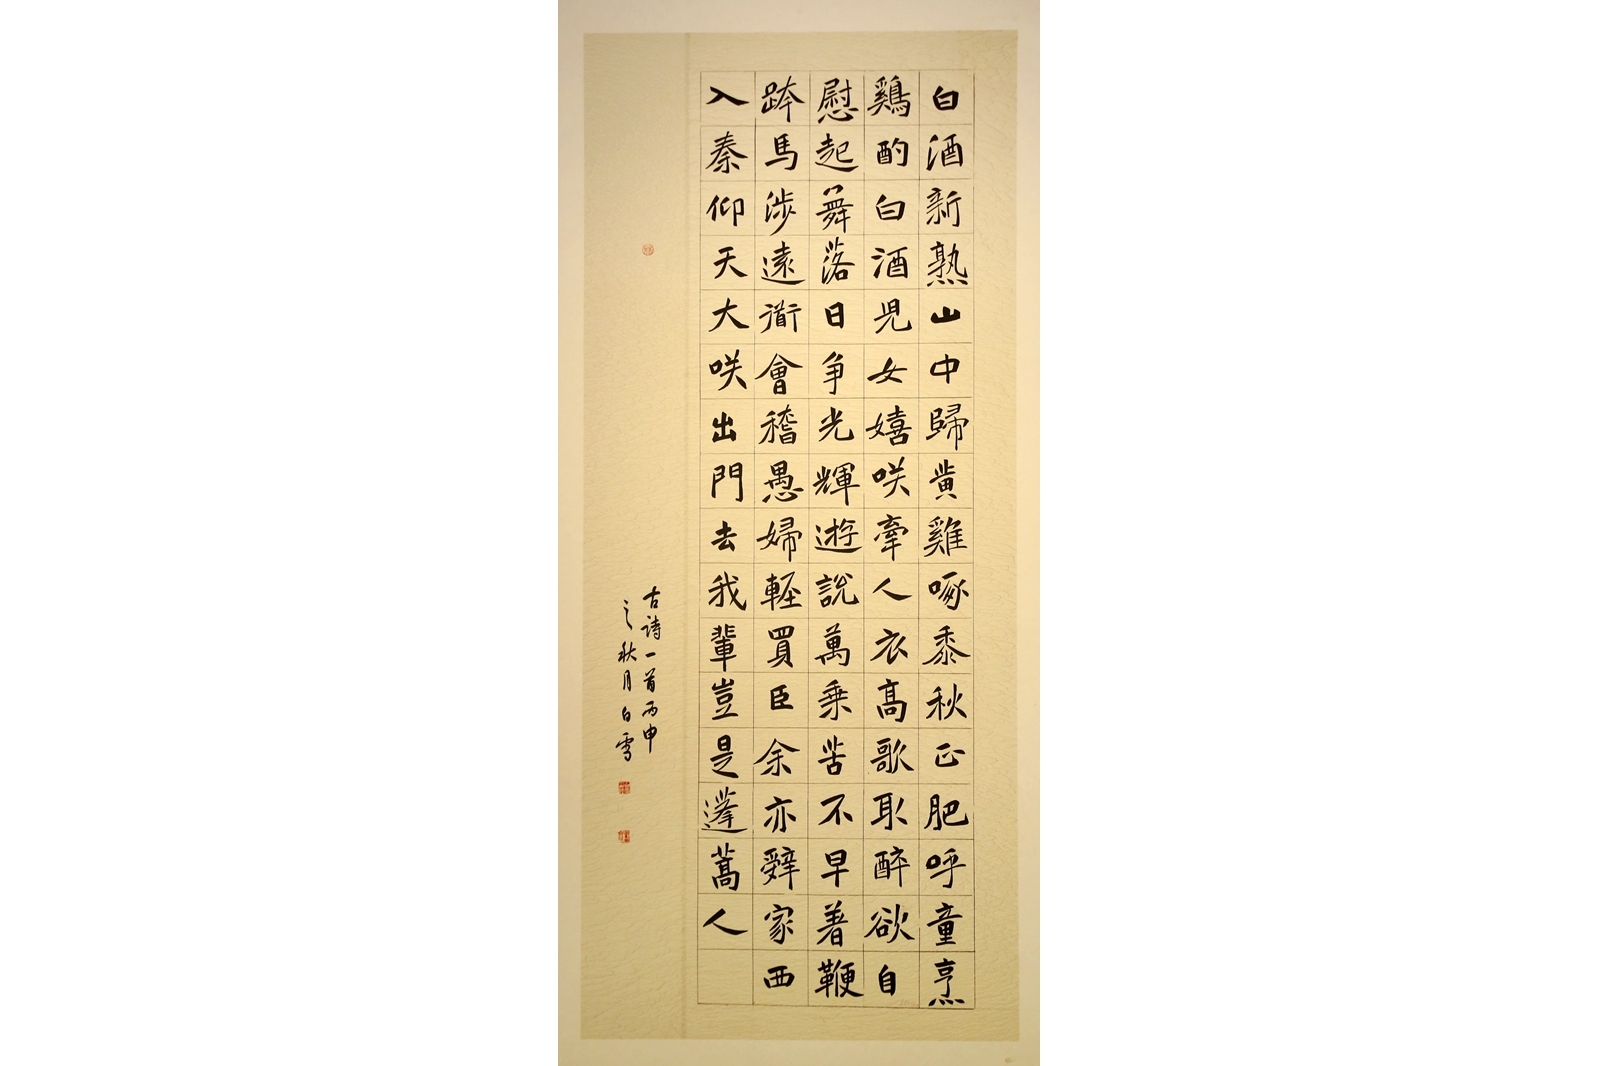 白酒新熟山中歸黄雞啄黍秋正肥呼童烹
鷄酌白酒児女嬉咲牽人衣高歌取醉欲自
慰起舞落日争光輝遊説萬乗苦不早着鞭
跨馬涉遠道會稽愚婦輕買臣余亦辤家西
入秦仰天大咲出門去我輩豈是蓬蒿人
古诗一首丙申
之秋月白雪